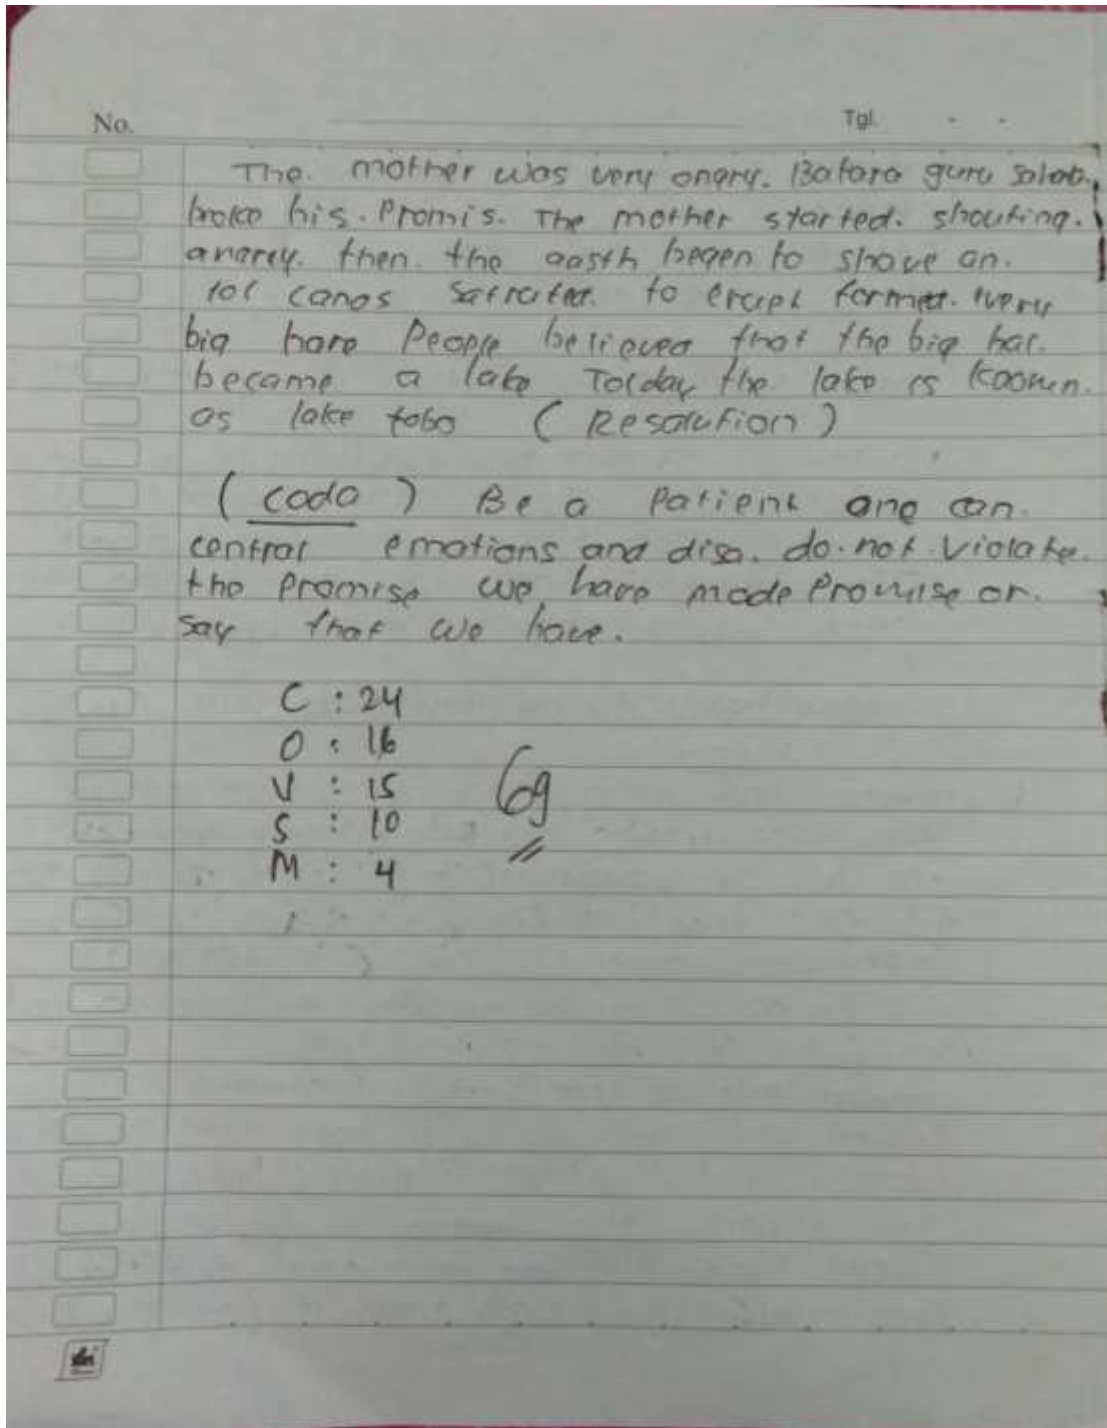 No. Tgl. - -
The. mother was very angry. Batara guru Sahala.
broke his. Promis. The mother started. shouting.
anarey. then. the aasth began to shave an.
tol canos Satrater. to erupt former. wery
big hore People believed that the big hal.
became a lake Tolday the lake is Kaown.
as lake toba (Resolution)
(coda) Be a Patient ane can.
control emotions and diso. do. not. Violate.
the Promise we have made Promise or.
say that we have.
C : 24
O : 16
V : 15
S : 10
M : 4
69